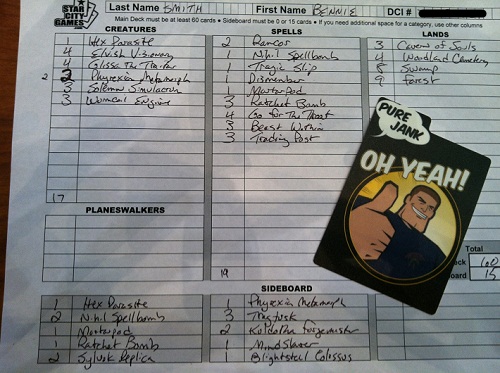 STAR CITY GAMES.COM
Last Name SMITH First Name BENNIE DCI #
Main Deck must be at least 60 cards • Sideboard must be 0 or 15 cards • If you need additional space for a category, use other columns
CREATURES
1 Hex Parasite
4 Elvish Visionary
4 Glissa The Traitor
2 2 Phyrexian Metamorph
3 Solemn Simulacrum
3 Wurmcoil Engine
17
PLANESWALKERS
SPELLS
2 Rancor
1 Nihil Spellbomb
1 Tragic Slip
1 Dismember
1 Mortarpod
3 Ratchet Bomb
4 Go for The Throat
3 Beast Within
3 Trading Post
19
LANDS
3 Cavern of Souls
4 Woodland Cemetery
8 Swamp
9 Forest
PURE JANK
OH YEAH!
Total
60
15
SIDEBOARD
1 Hex Parasite
2 Nihil Spellbomb
1 Mortarpod
1 Ratchet Bomb
2 Sylvok Replica
1 Phyrexian Metamorph
3 Thragtusk
2 Kuldotha Forgemaster
1 Mindslaver
1 Blightsteel Colossus